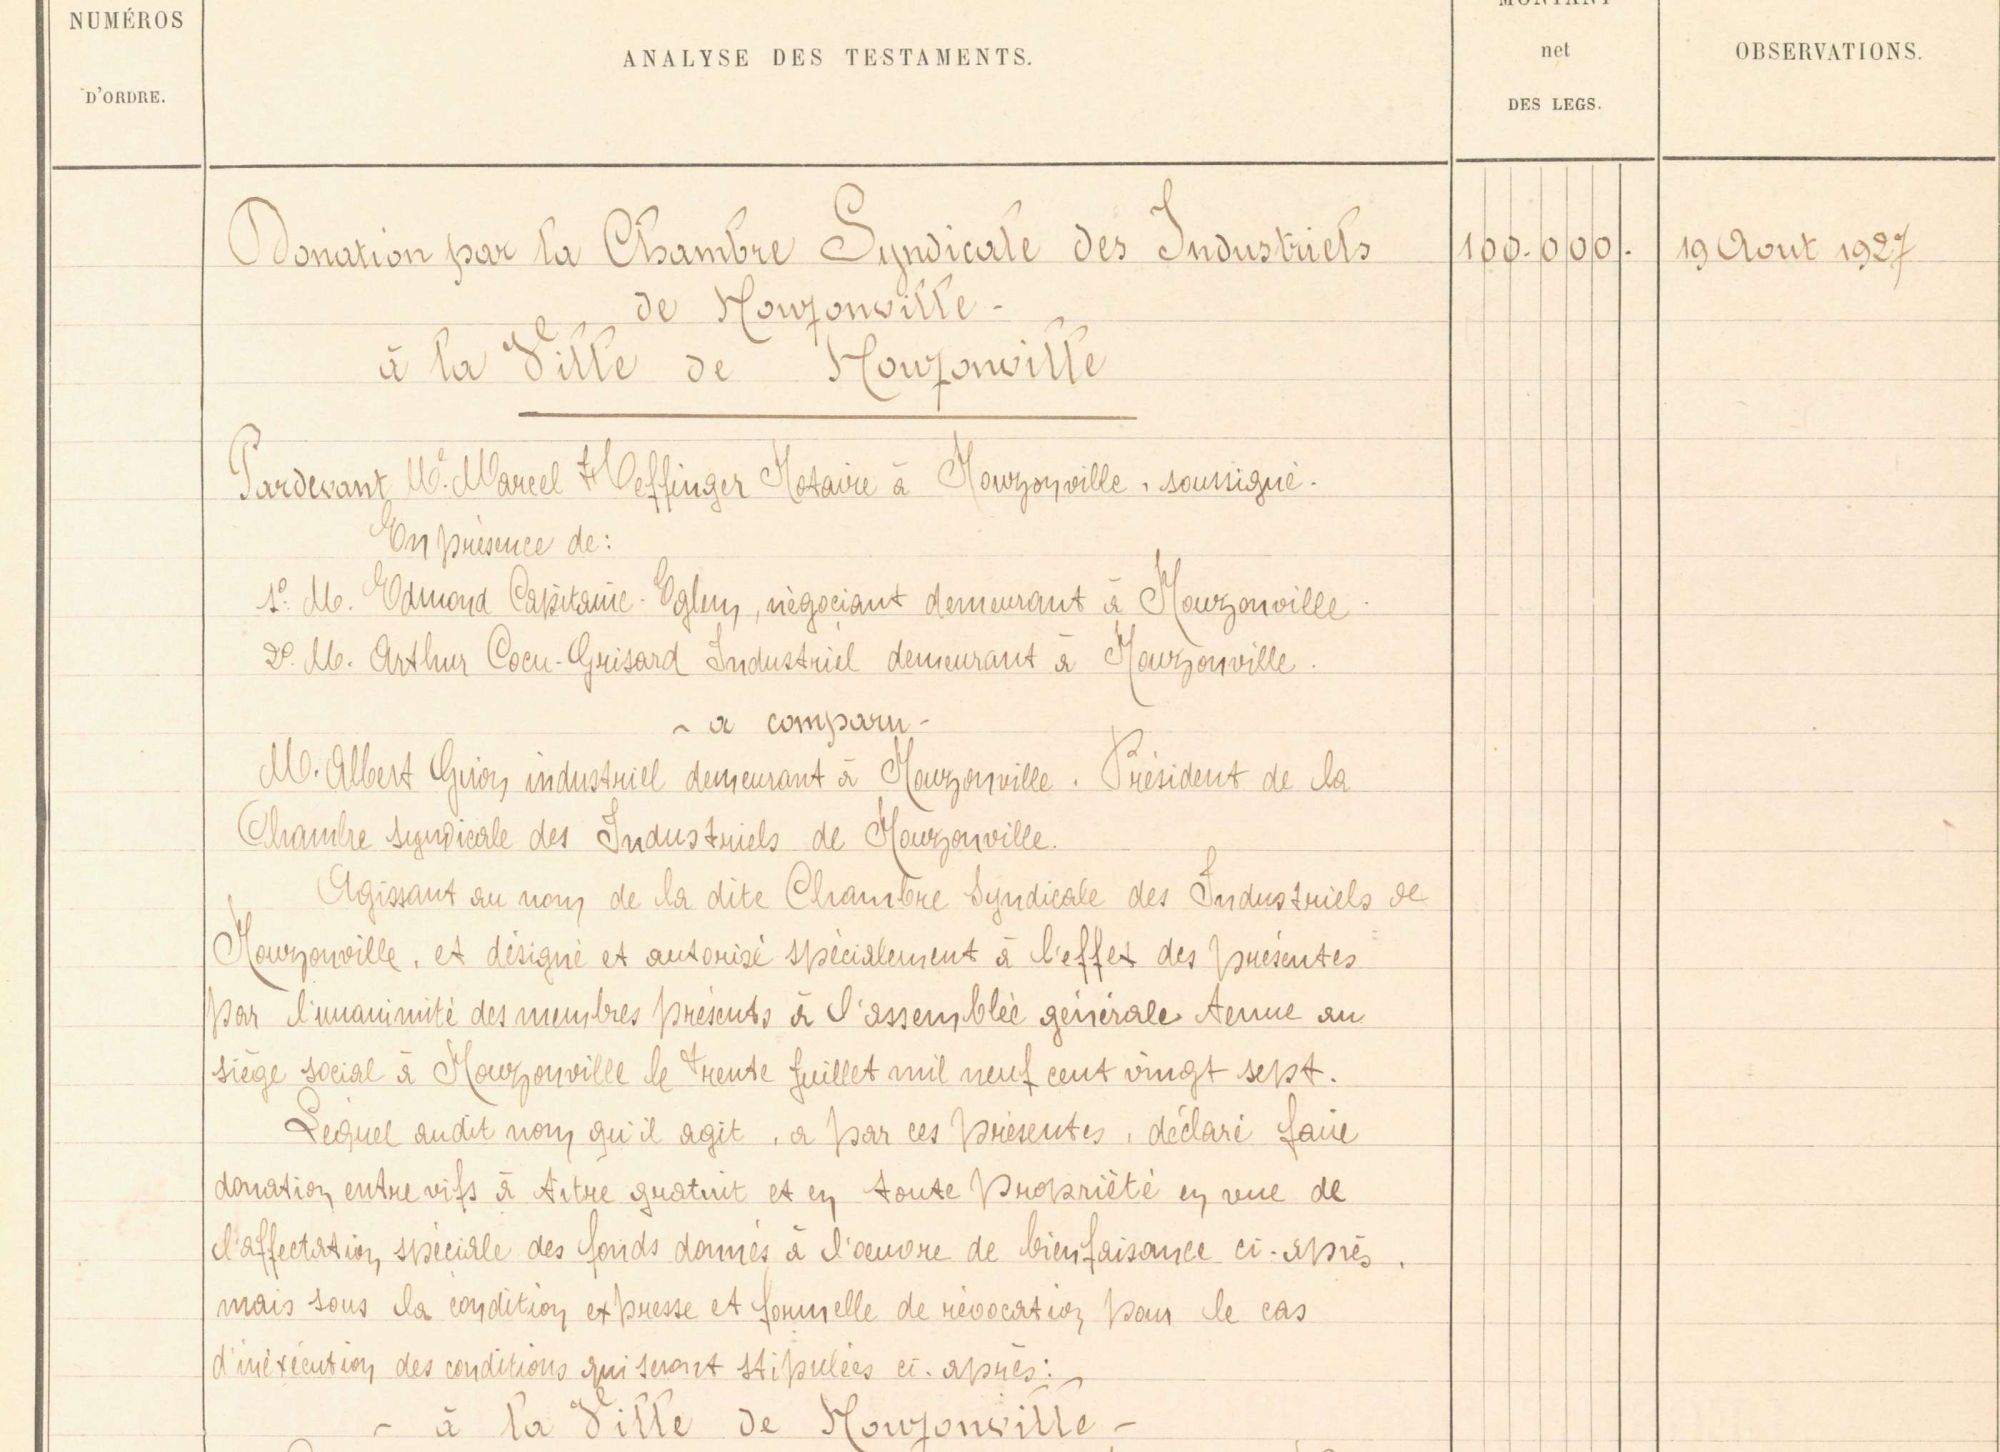 NUMÉROS
D'ORDRE.
ANALYSE DES TESTAMENTS.
MONTANT
net
DES LEGS.
OBSERVATIONS.
Donation par la Chambre Syndicale des Industriels
100.000.
19 Aout 1927
de Nouzonville -
à la Ville de Nouzonville
Pardevant Me. Marcel Heffinger Notaire à Nouzonville, soussigné.
En présence de:
1º. M. Edmond Capitaine-Egley, négociant demeurant à Nouzonville.
2º. M. Arthur Cocu-Grisard Industriel demeurant à Nouzonville.
- a comparu -
M. Albert Guion industriel demeurant à Nouzonville. Président de la
Chambre syndicale des Industriels de Nouzonville.
Agissant au nom de la dite Chambre Syndicale des Industriels de
Nouzonville, et désigné et autorisé spécialement à l'effet des présentes
par l'unanimité des membres présents à l'assemblée générale tenue au
siège social à Nouzonville le trente Juillet mil neuf cent vingt sept.
Lequel audit nom qu'il agit, a par ces présentes, déclaré faire
donation entre vifs à titre gratuit et en toute propriété en vue de
l'affectation spéciale des fonds donnés à l'œuvre de bienfaisance ci-après,
mais sous la condition expresse et formelle de révocation pour le cas
d'inéxécution des conditions qui seront stipulées ci-après:
- à la Ville de Nouzonville -